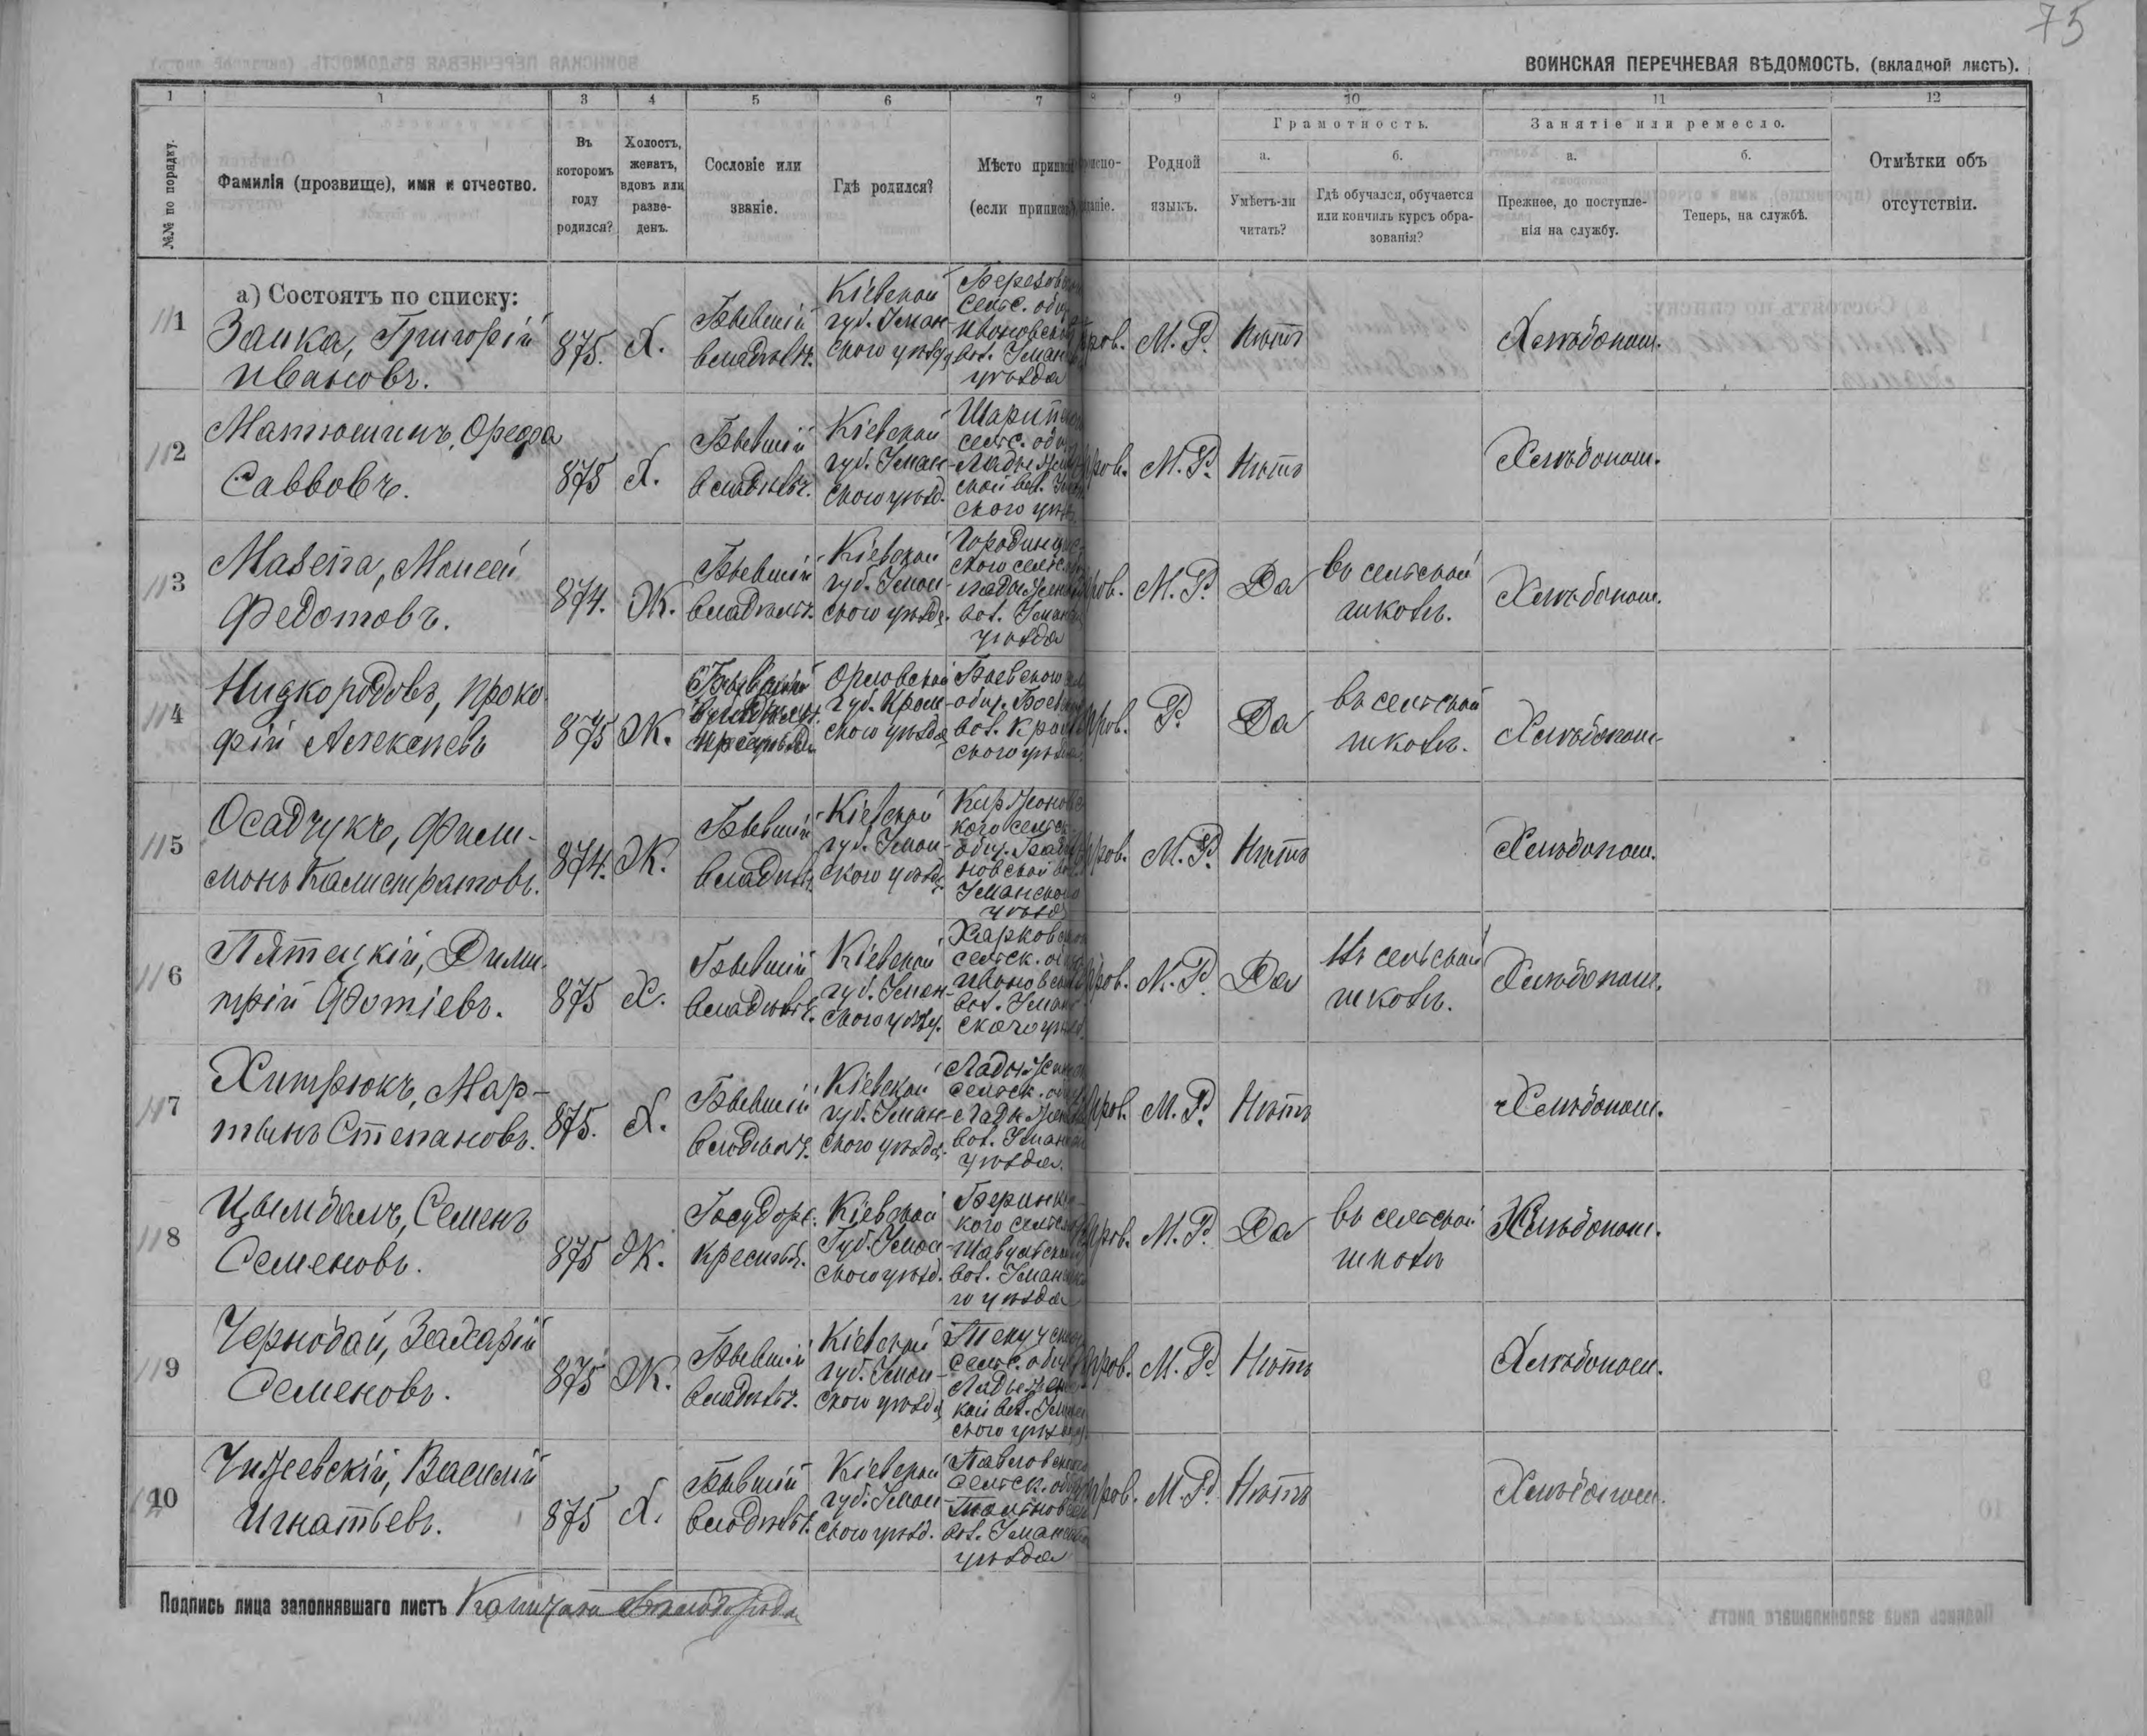 75
ВОИНСКАЯ ПЕРЕЧНЕВАЯ ВѢДОМОСТЬ. (вкладной листъ).
1 1 3 4 5 6 7 8 9 10 11 12
№№ по порядку.
Фамилія (прозвище), имя и отчество.
Въ которомъ году родился?
Холостъ, женатъ, вдовъ или разве-денъ.
Сословіе или званіе.
Гдѣ родился?
Мѣсто припис
(если приписа
Родной языкъ.
Грамотность.
а. Умѣетъ-ли читать?
б. Гдѣ обучался, обучается или кончилъ курсъ обра-зованія?
Занятіе или ремесло.
а. Прежнее, до поступле-нія на службу.
б. Теперь, на службѣ.
Отмѣтки объ отсутствіи.
а) Состоятъ по списку:
111 Заика, Григорій Ивановъ. 875. Х. Бывшій владѣльч. Кіевской губ. Уман-ского уѣзда Березовской сельс. общ. Ивановской вол. Уманс уѣзда пров. М. Р. Нѣтъ Хлѣбопаш.
112 Саввовъ. 875 Х. Бывшій владѣльч. Кіевской губ. Уман-ского уѣзд. сельс. общ. Ладыжин ской вол. Уман ского уѣзд. пров. М. Р. Нѣтъ Хлѣбопаш.
113 Мазепа, Моисей Федотовъ. 874. Ж. Бывшій владѣльч. Кіевской губ. Уман-ского уѣзда. Городищен ского сельск Ладыжин вол. Уманс уѣзда ров. М. Р. Да въ сельской школѣ. Хлѣбопаш.
114 Алексѣевъ 875 Ж. Орловской губ. Кром-ского уѣзда Боевского общ. Боевс вол. Кром ского уѣзда пров. Р. Да въ сельской школѣ. Хлѣбопаш.
115 Осадчукъ, Фили-монъ Калистратовъ. 874. Ж. Бывшій владѣльч. Кіевской губ. Уман-ского уѣзд. кого сельск общ. новской вол. Уманского уѣзд пров. М. Р. Нѣтъ Хлѣбопаш.
116 Пятецкій, Дими-трій Фотіевъ. 875 Х. Бывшій владѣльч. Кіевской губ. Уман-ского уѣзд. Харковской сельск. общ Ивановской вол. Уман ского уѣзд. пров. М. Р. Да Въ сельской школѣ. Хлѣбопаш.
117 Хитрюкъ, Мар-тынъ Степановъ. 875. Х. Бывшій владѣльч. Кіевской губ. Уман-ского уѣзда. Ладыжин сельск. общ Ладыжин вол. Уманской уѣзда. пров. М. Р. Нѣтъ Хлѣбопаш.
118 Цымбалъ, Семенъ Семеновъ. 875 Ж. Государс. крестьян. Кіевской Губ. Уман-ского уѣзд. кого сельск вол. Уманско го уѣзда пров. М. Р. Да въ сельской школѣ Хлѣбопаш.
119 Чернобай, Захарій Семеновъ. 875 Ж. Бывшій владѣльч. Кіевской губ. Уман-ского уѣзда сельс. общ. Ладыжинс кой вол. Уман ского уѣзда пров. М. Р. Нѣтъ Хлѣбопаш.
120 Чижевскій, Василій Игнатьевъ. 875 Х. Бывшій владѣльч. Кіевской губ. Уман-ского уѣзд. Павловского сельск. общ Тальновской вол. Уманской уѣзда пров. М. Р. Нѣтъ Хлѣбопаш.
Подпись лица заполнявшаго листъ